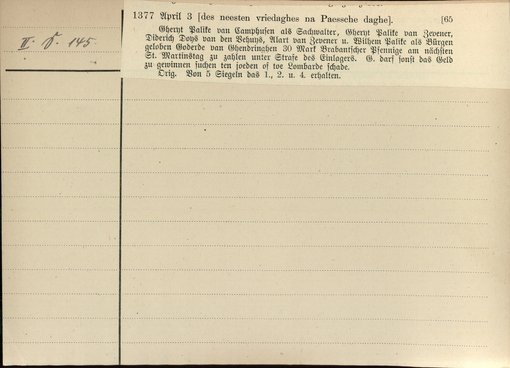 1377 April 3 [des neesten vriedaghes na Paessche daghe]. [65
II. S. 145
Gheryt Palike van Camphusen als Sachwalter, Gheryt Palike van Zevener,
Diderich Doys van den Vehuys, Alart van Zevener u. Wilhem Palike als Bürgen
geloben Goderde van Ghendringhen 30 Mark Brabantischer Pfennige am nächsten
St. Martinstag zu zahlen unter Strafe des Einlagers. G. darf sonst das Geld
zu gewinnen suchen ten joeden of toe Lombarde schade.
Orig. Von 5 Siegeln das 1., 2. u. 4. erhalten.